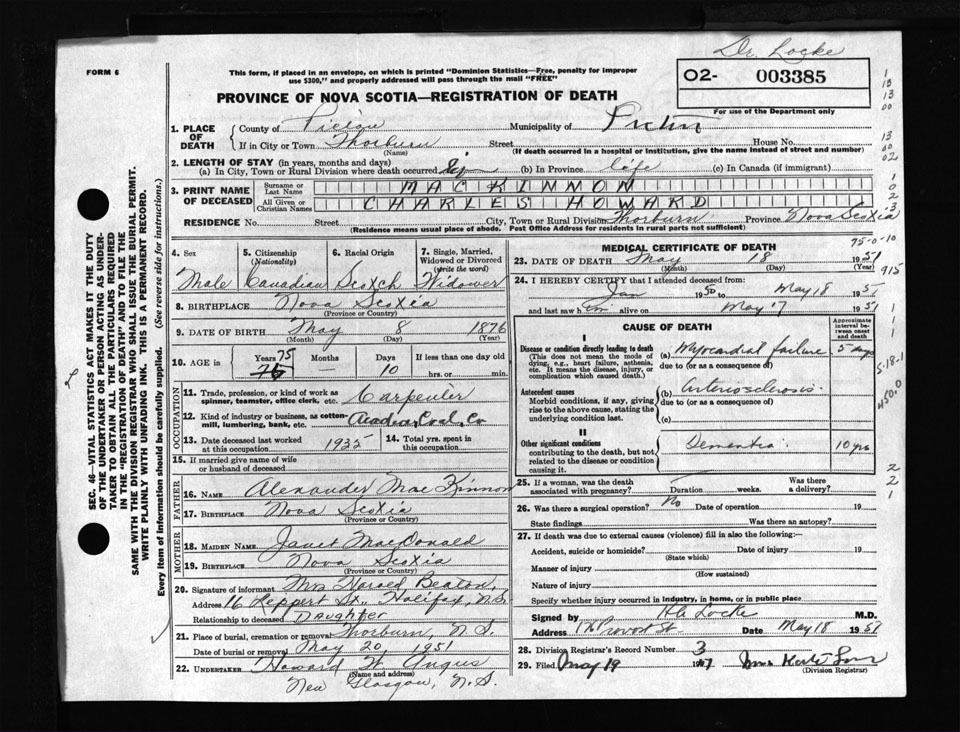 Dr. Locke
FORM 6
This form, if placed in an envelope, on which is printed "Dominion Statistics—Free, penalty for improper
use $300," and properly addressed will pass through the mail "FREE"
O2- 003385
PROVINCE OF NOVA SCOTIA—REGISTRATION OF DEATH
For use of the Department only
1. PLACE OF DEATH
County of Pictou Municipality of Pictou
If in City or Town Thorburn Street House No.
(Name) (If death occurred in a hospital or institution, give the name instead of street and number)
2. LENGTH OF STAY (in years, months and days)
(a) In City, Town or Rural Division where death occurred (b) In Province life (c) In Canada (if immigrant)
3. PRINT NAME OF DECEASED
Surname or Last Name MAC KINNON
All Given or Christian Names CHARLES HOWARD
RESIDENCE No. Street City, Town or Rural Division Thorburn Province Nova Scotia
(Residence means usual place of abode. Post Office Address for residents in rural parts not sufficient)
4. Sex 5. Citizenship (Nationality) 6. Racial Origin 7. Single, Married, Widowed or Divorced (write the word)
Male Canadian Scotch Widower
8. BIRTHPLACE Nova Scotia
(Province or Country)
9. DATE OF BIRTH May 8 1876
(Month) (Day) (Year)
10. AGE in Years 75 Months — Days 10 If less than one day old hrs. or min.
OCCUPATION
11. Trade, profession, or kind of work as spinner, teamster, office clerk, etc. Carpenter
12. Kind of industry or business, as cotton-mill, lumbering, bank, etc. Acadia Coal Co
13. Date deceased last worked at this occupation 1935 14. Total yrs. spent in this occupation
15. If married give name of wife or husband of deceased
FATHER
16. NAME Alexander MacKinnon
17. BIRTHPLACE Nova Scotia
(Province or Country)
MOTHER
18. MAIDEN NAME Janet MacDonald
19. BIRTHPLACE Nova Scotia
(Province or Country)
20. Signature of informant Mrs Harold Beaton,
Address 16 Leppert St., Halifax, N.S.
Relationship to deceased Daughter
21. Place of burial, cremation or removal Thorburn, N.S.
Date of burial or removal May 20, 1951
22. UNDERTAKER Howard W. Angus
(Name and address)
New Glasgow, N.S.
MEDICAL CERTIFICATE OF DEATH
75-0-10
23. DATE OF DEATH May 18 1951
(Month) (Day) (Year)
915
24. I HEREBY CERTIFY that I attended deceased from:
Jan 1950 to May 18 1951
and last saw him alive on May 17 1951
CAUSE OF DEATH
Approximate interval between onset and death
I
Disease or condition directly leading to death
(This does not mean the mode of dying, e.g., heart failure, asthenia, etc. It means the disease, injury, or complication which caused death.)
(a) Myocardial failure 5 days
due to (or as a consequence of)
Antecedent causes
Morbid conditions, if any, giving rise to the above cause, stating the underlying condition last.
(b) Arteriosclerosis
due to (or as a consequence of)
(c)
II
Other significant conditions
contributing to the death, but not related to the disease or condition causing it.
Dementia 10 yrs
5-18-1
4500
25. If a woman, was the death associated with pregnancy? Duration weeks. Was there a delivery?
26. Was there a surgical operation? No Date of operation 19
State findings Was there an autopsy?
27. If death was due to external causes (violence) fill in also the following:—
Accident, suicide or homicide? Date of injury 19
(State which)
Manner of injury
(How sustained)
Nature of injury
Specify whether injury occurred in industry, in home, or in public place
Signed by HA Locke M.D.
Address 176 Provost St. Date May 18 1951
28. Division Registrar's Record Number 3
29. Filed May 19
(Division Registrar)
SEC. 46—VITAL STATISTICS ACT MAKES IT THE DUTY
OF THE UNDERTAKER OR PERSON ACTING AS UNDER-
TAKER TO OBTAIN ALL THE PARTICULARS REQUIRED
IN THE "REGISTRATION OF DEATH" AND TO FILE THE
SAME WITH THE DIVISION REGISTRAR WHO SHALL ISSUE THE BURIAL PERMIT.
WRITE PLAINLY WITH UNFADING INK. THIS IS A PERMANENT RECORD.
Every item of information should be carefully supplied. (See reverse side for instructions.)